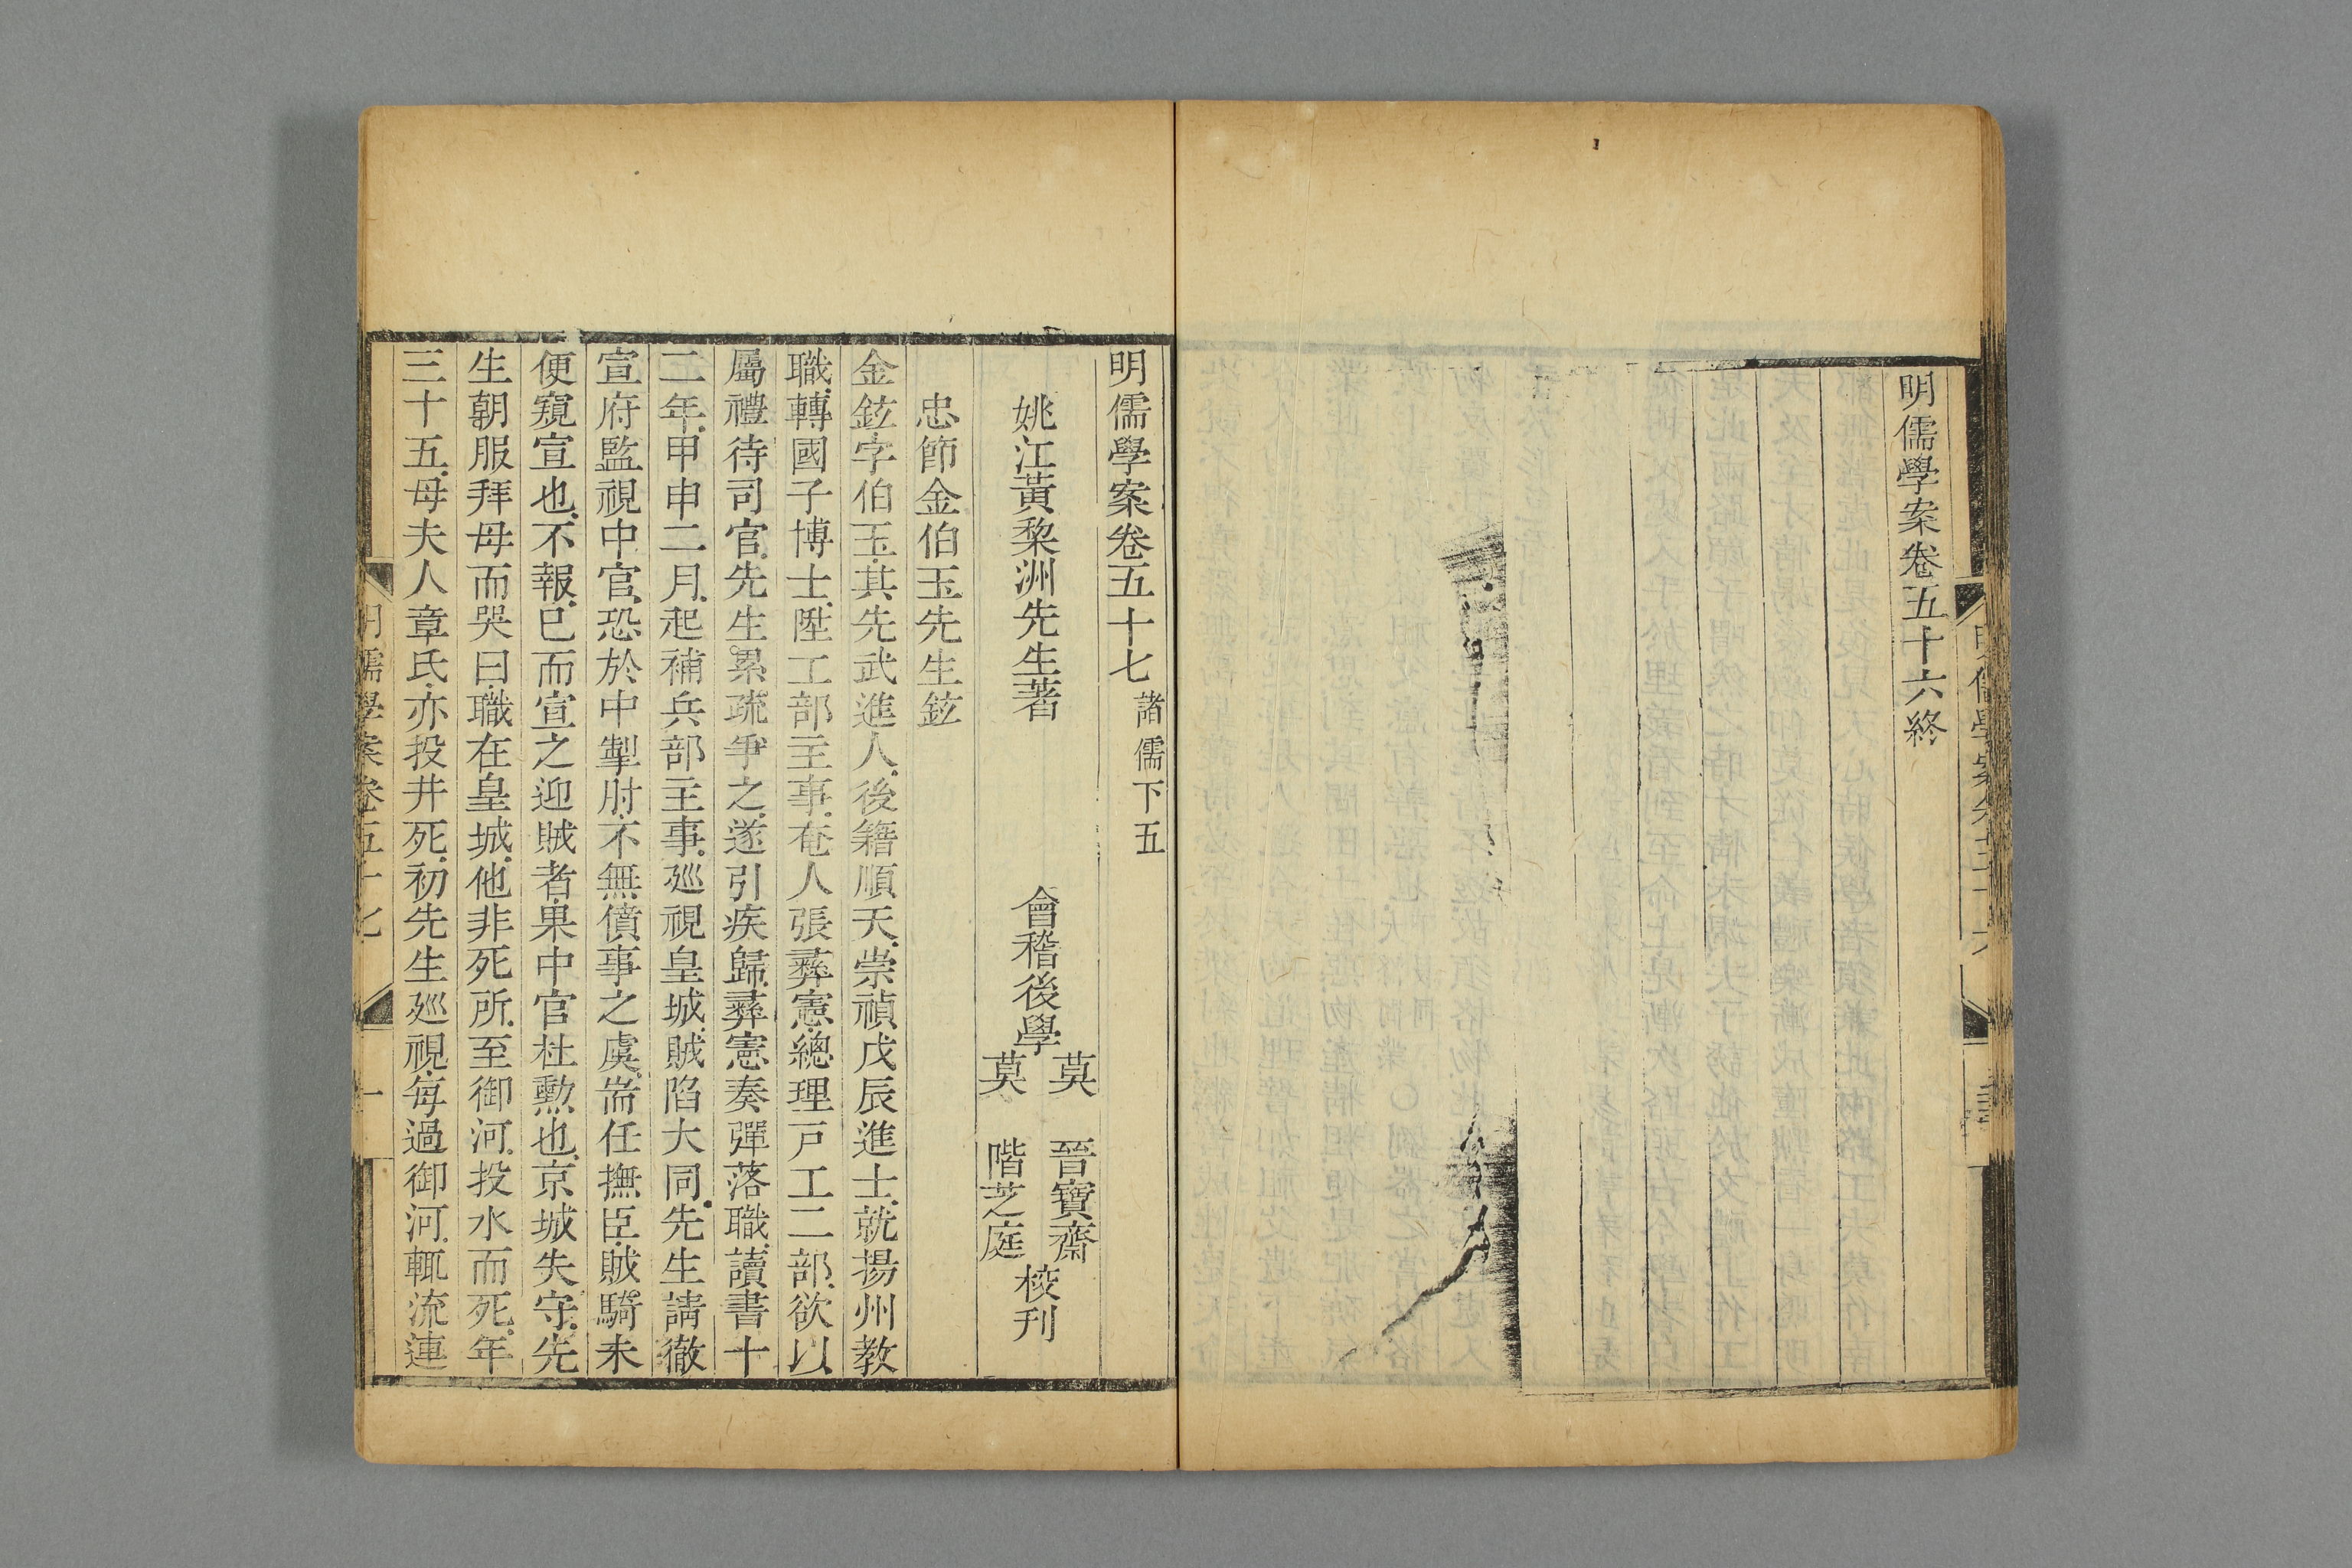 明儒學案卷五十六終
明儒學案卷五十七 諸儒下五
姚江黃棃洲先生著 會稽後學
莫 晉寶齋
莫 階芝庭
校刊
忠節金伯玉先生鉉
金鉉字伯玉其先武進人後籍順天崇禎戊辰進士就揚州教
職轉國子博士陞工部主事奄人張彝憲總理戸工二部欲以
屬禮待司官先生累疏爭之遂引疾歸彝憲奏彈落職讀書十
二年甲申二月起補兵部主事廵視皇城賊陷大同先生請徹
宣府監視中官恐於中掣肘不無僨事之虞耑任撫臣賊騎未
便窺宣也不報巳而宣之迎賊者果中官杜勲也京城失守先
生朝服拜母而哭曰職在皇城他非死所至御河投水而死年
三十五母夫人章氏亦投井死初先生廵視每過御河輒流連
明儒學案卷五十七 一